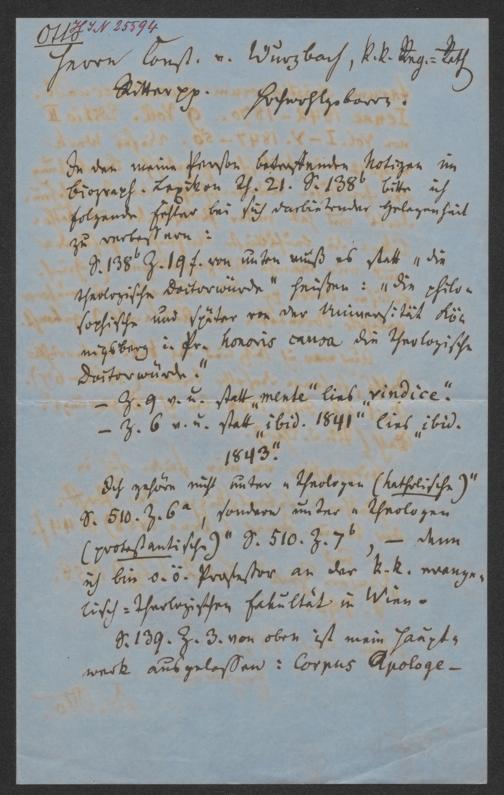 Otto
HIN 25594
Herrn Const. v. Wurzbach, k. k. Reg.=Rath
Ritter pp. Hochwohlgeboren.
In den meine Person betreffenden Notizen im
biograph. Lexikon Th. 21. S. 138b bitte ich
folgende Fehler bei sich darbietender Gelegenheit
zu verbessern:
S. 138b Z. 19 f. von unten muß es statt „die
theologische Doctorwürde“ heißen: „die philo-
sophische und später von der Universität Kö-
nigsberg in Pr. honoris causa die theologische
Doctorwürde.“
— Z. 9 v. u. statt „mente“ lies „vindice“.
— Z. 6 v. u. statt „ibid. 1841“ lies „ibid.
1843“.
Ich gehöre nicht unter „Theologen (katholische)“
S. 510. Z. 6a, sondern unter „Theologen
(protestantische)“ S. 510. Z. 7b, — denn
ich bin o. ö. Professor an der k. k. evange-
lisch=theologischen Fakultät in Wien.
S. 139. Z. 3. von oben ist mein Haupt-
werk ausgelassen: Corpus Apologe-